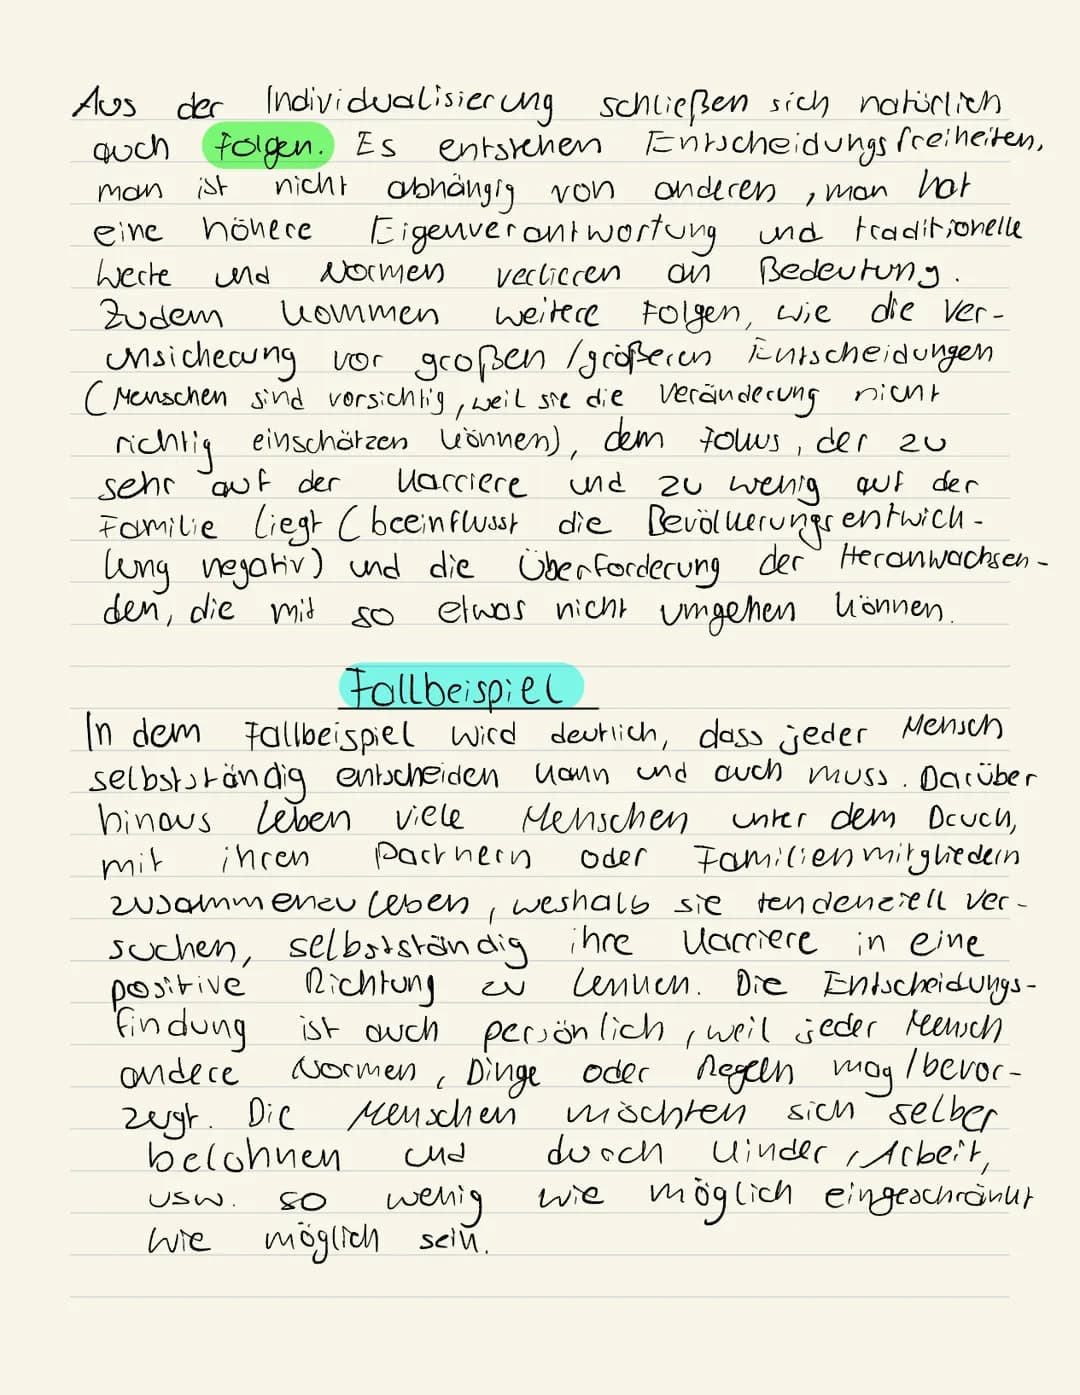 Aus der Individualisierung schließen sich natürlich
auch Folgen. Es entstehen Entscheidungsfreiheiten,
man ist nicht abhängig von anderen, man hat
eine höhere Eigenverantwortung und traditionelle
Werte und Normen verlieren an Bedeutung.
Zudem kommen weitere Folgen, wie die Ver-
unsicherung vor großen/größeren Entscheidungen
(Menschen sind vorsichtig, weil sie die Veränderung nicht
richtig einschätzen können), dem Fokus, der zu
sehr auf der Karriere und zu wenig auf der
Familie liegt (beeinflusst die Bevölkerungsentwick-
lung negativ) und die Überforderung der Heranwachsen-
den, die mit so etwas nicht umgehen können.
Fallbeispiel
In dem Fallbeispiel wird deutlich, dass jeder Mensch
selbstständig entscheiden kann und auch muss. Darüber
hinaus leben viele Menschen unter dem Druck,
mit ihren Partnern oder Familienmitgliedern
zusammenzuleben, weshalb sie tendenziell ver-
suchen, selbstständig ihre Karriere in eine
positive Richtung zu lenken. Die Entscheidungs-
findung ist auch persönlich, weil jeder Mensch
andere Normen, Dinge oder Regeln mag/bevor-
zugt. Die Menschen möchten sich selber
belohnen und durch Kinder, Arbeit,
usw. so wenig wie möglich eingeschränkt
wie möglich sein.